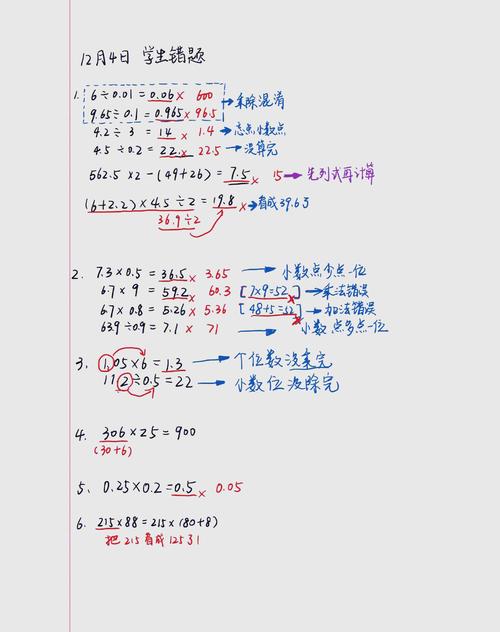 12月4日 学生错题
1. 6÷0.01=0.06× 600
9.65÷0.1=0.965×96.5 →乘除混淆
4.2÷3=14 × 1.4 →忘点小数点
4.5÷0.2=22.× 22.5 →没算完
562.5×2-(49+26)=7.5× 15→先列式再计算
(6+2.2)×4.5÷2=19.8×→看成39.6了
36.9÷2
2. 7.3×0.5=36.5× 3.65 →小数点少点一位
6.7×9=59.2 60.3 [7×9=52]× →乘法错误
6.7×0.8=5.26×5.36 [48+5=52]× →加法错误
63.9÷0.9=7.1× 71 →小数点多点一位
3. 1.05×6=1.3 →个位数没乘完
11.2÷0.5=22 →小数位没除完
4. 306×25=900
(30+6)
5、0.25×0.2=0.5× 0.05
6. 215×88=215×(80+8)
把215看成125了!